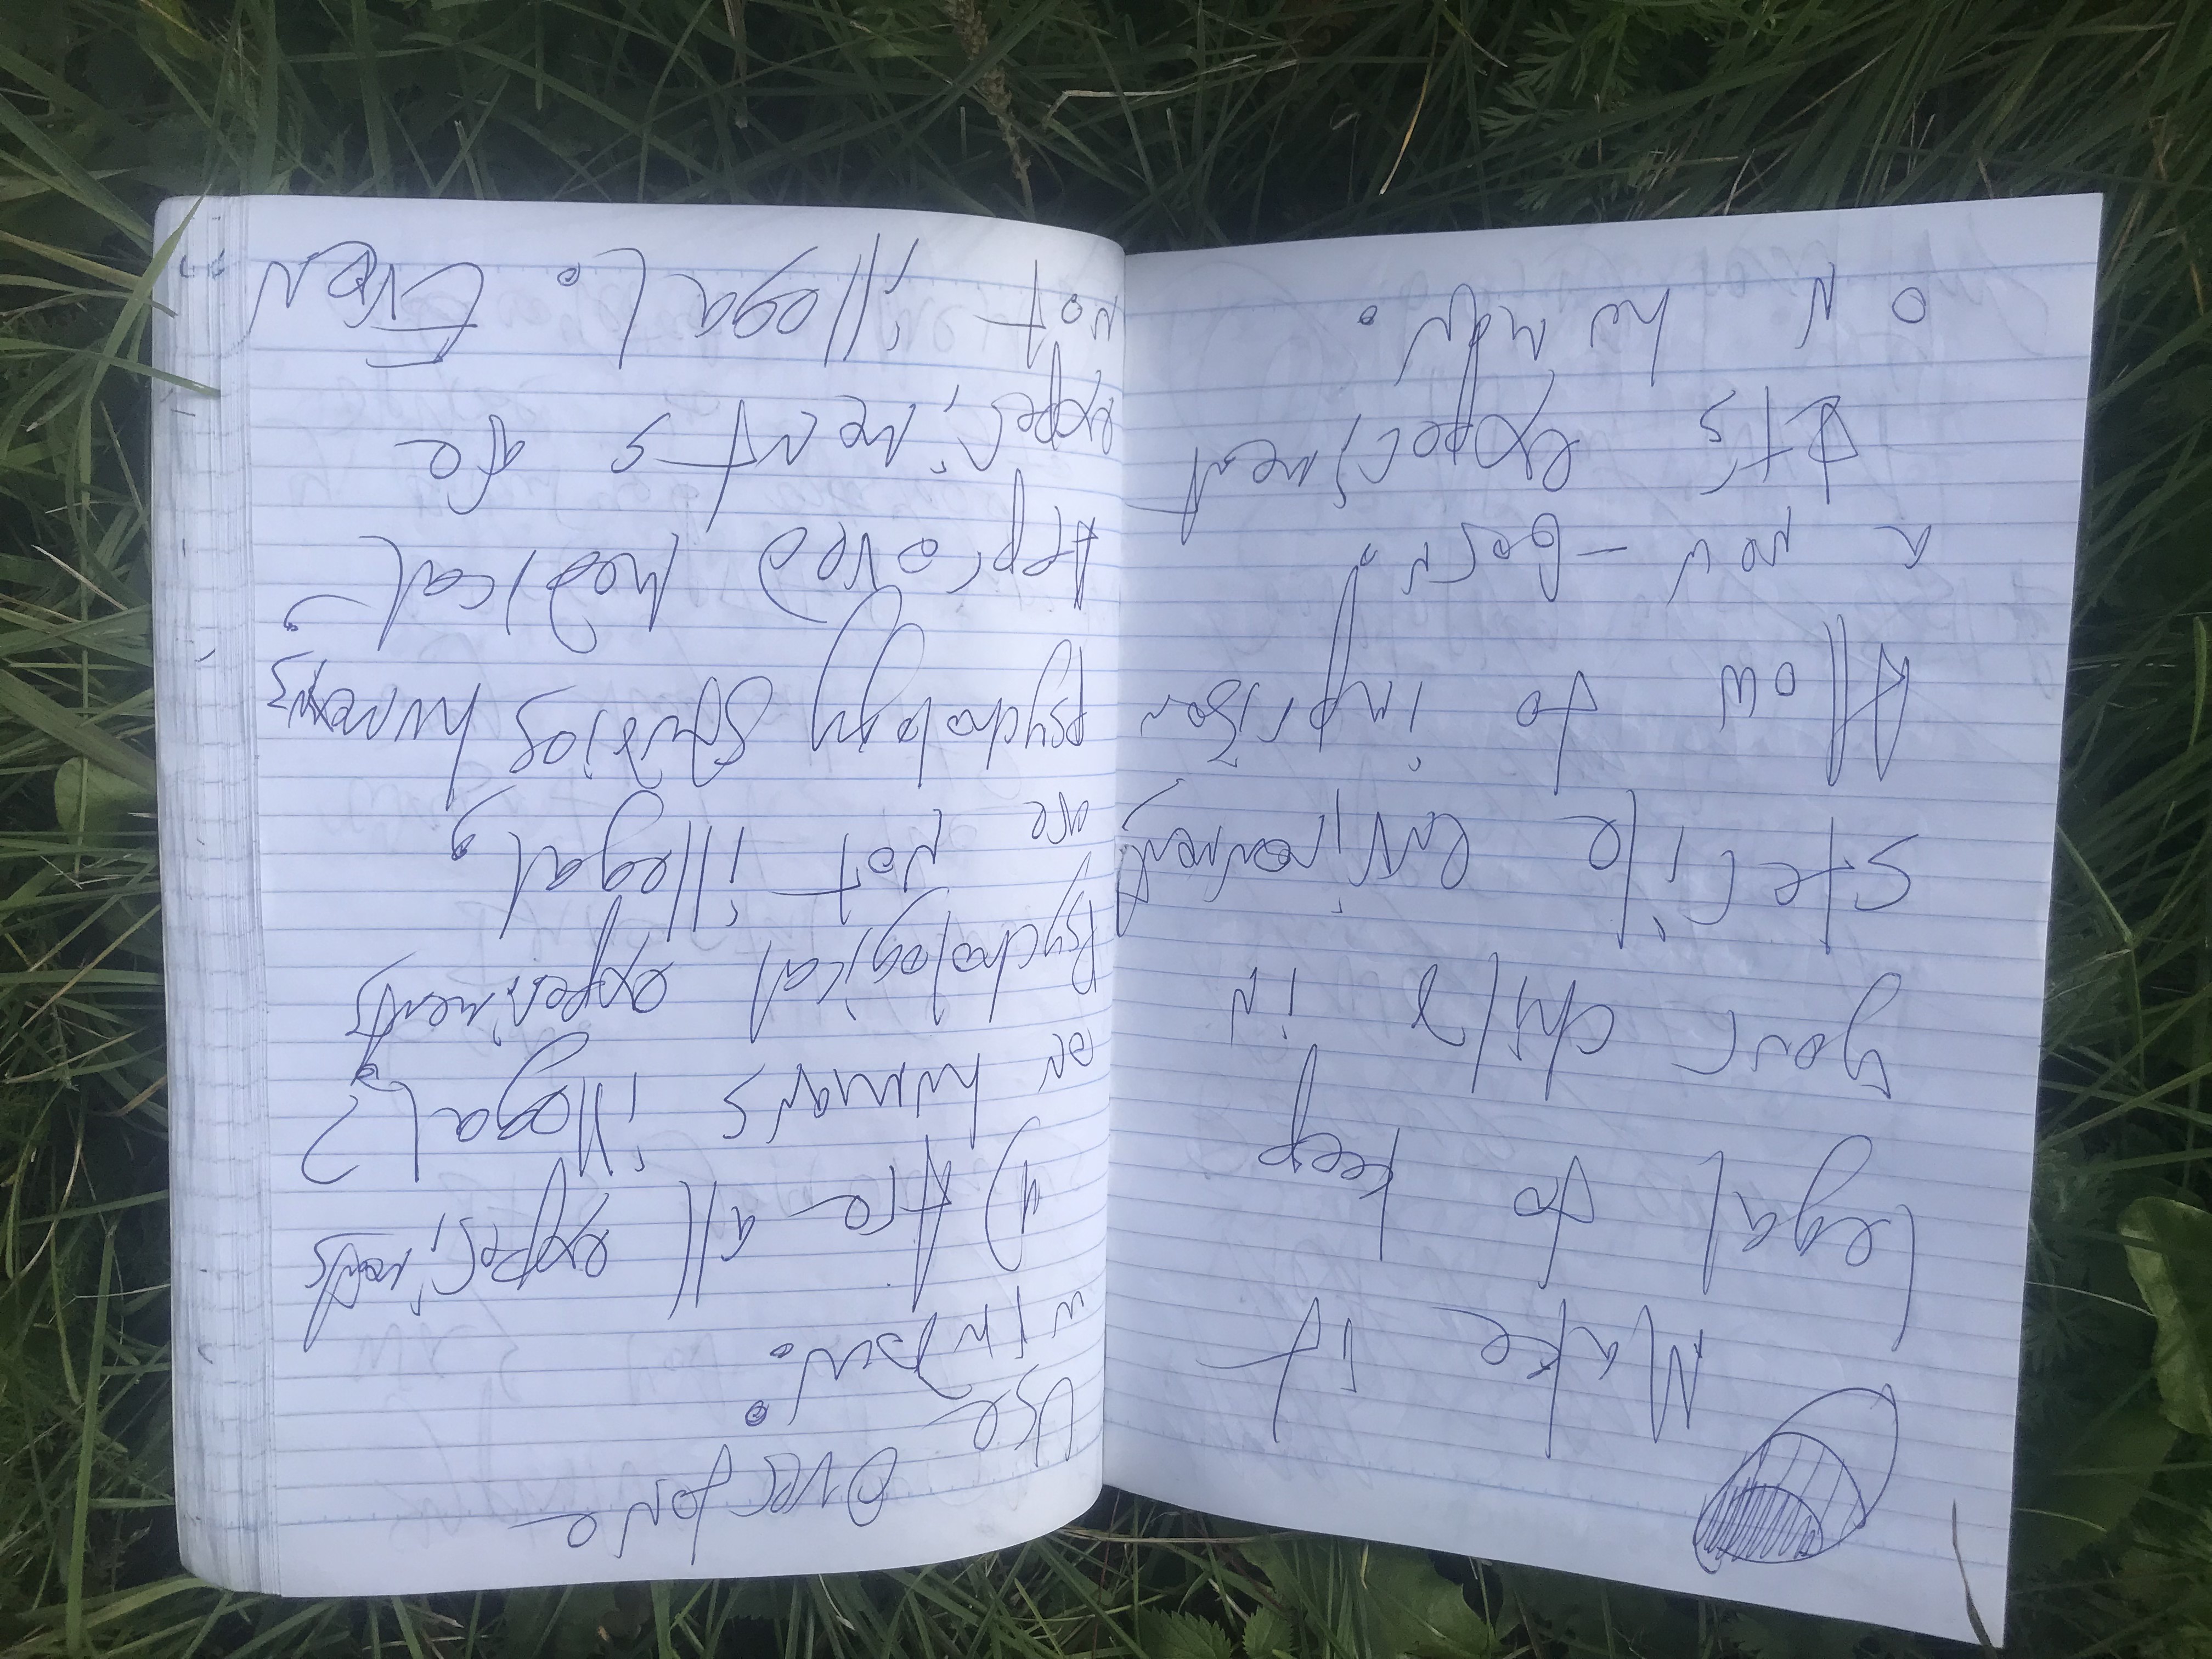 Make it
legal to keep
your child in
sterile environment,
Allow to imprison
a new-born,
Its experiment
on human.
Use
4) Are all experiments
on humans illegal?
Psychological experiments
are not illegal,
psychology studies humans,
Approved medical
experiments are
not illegal. Even